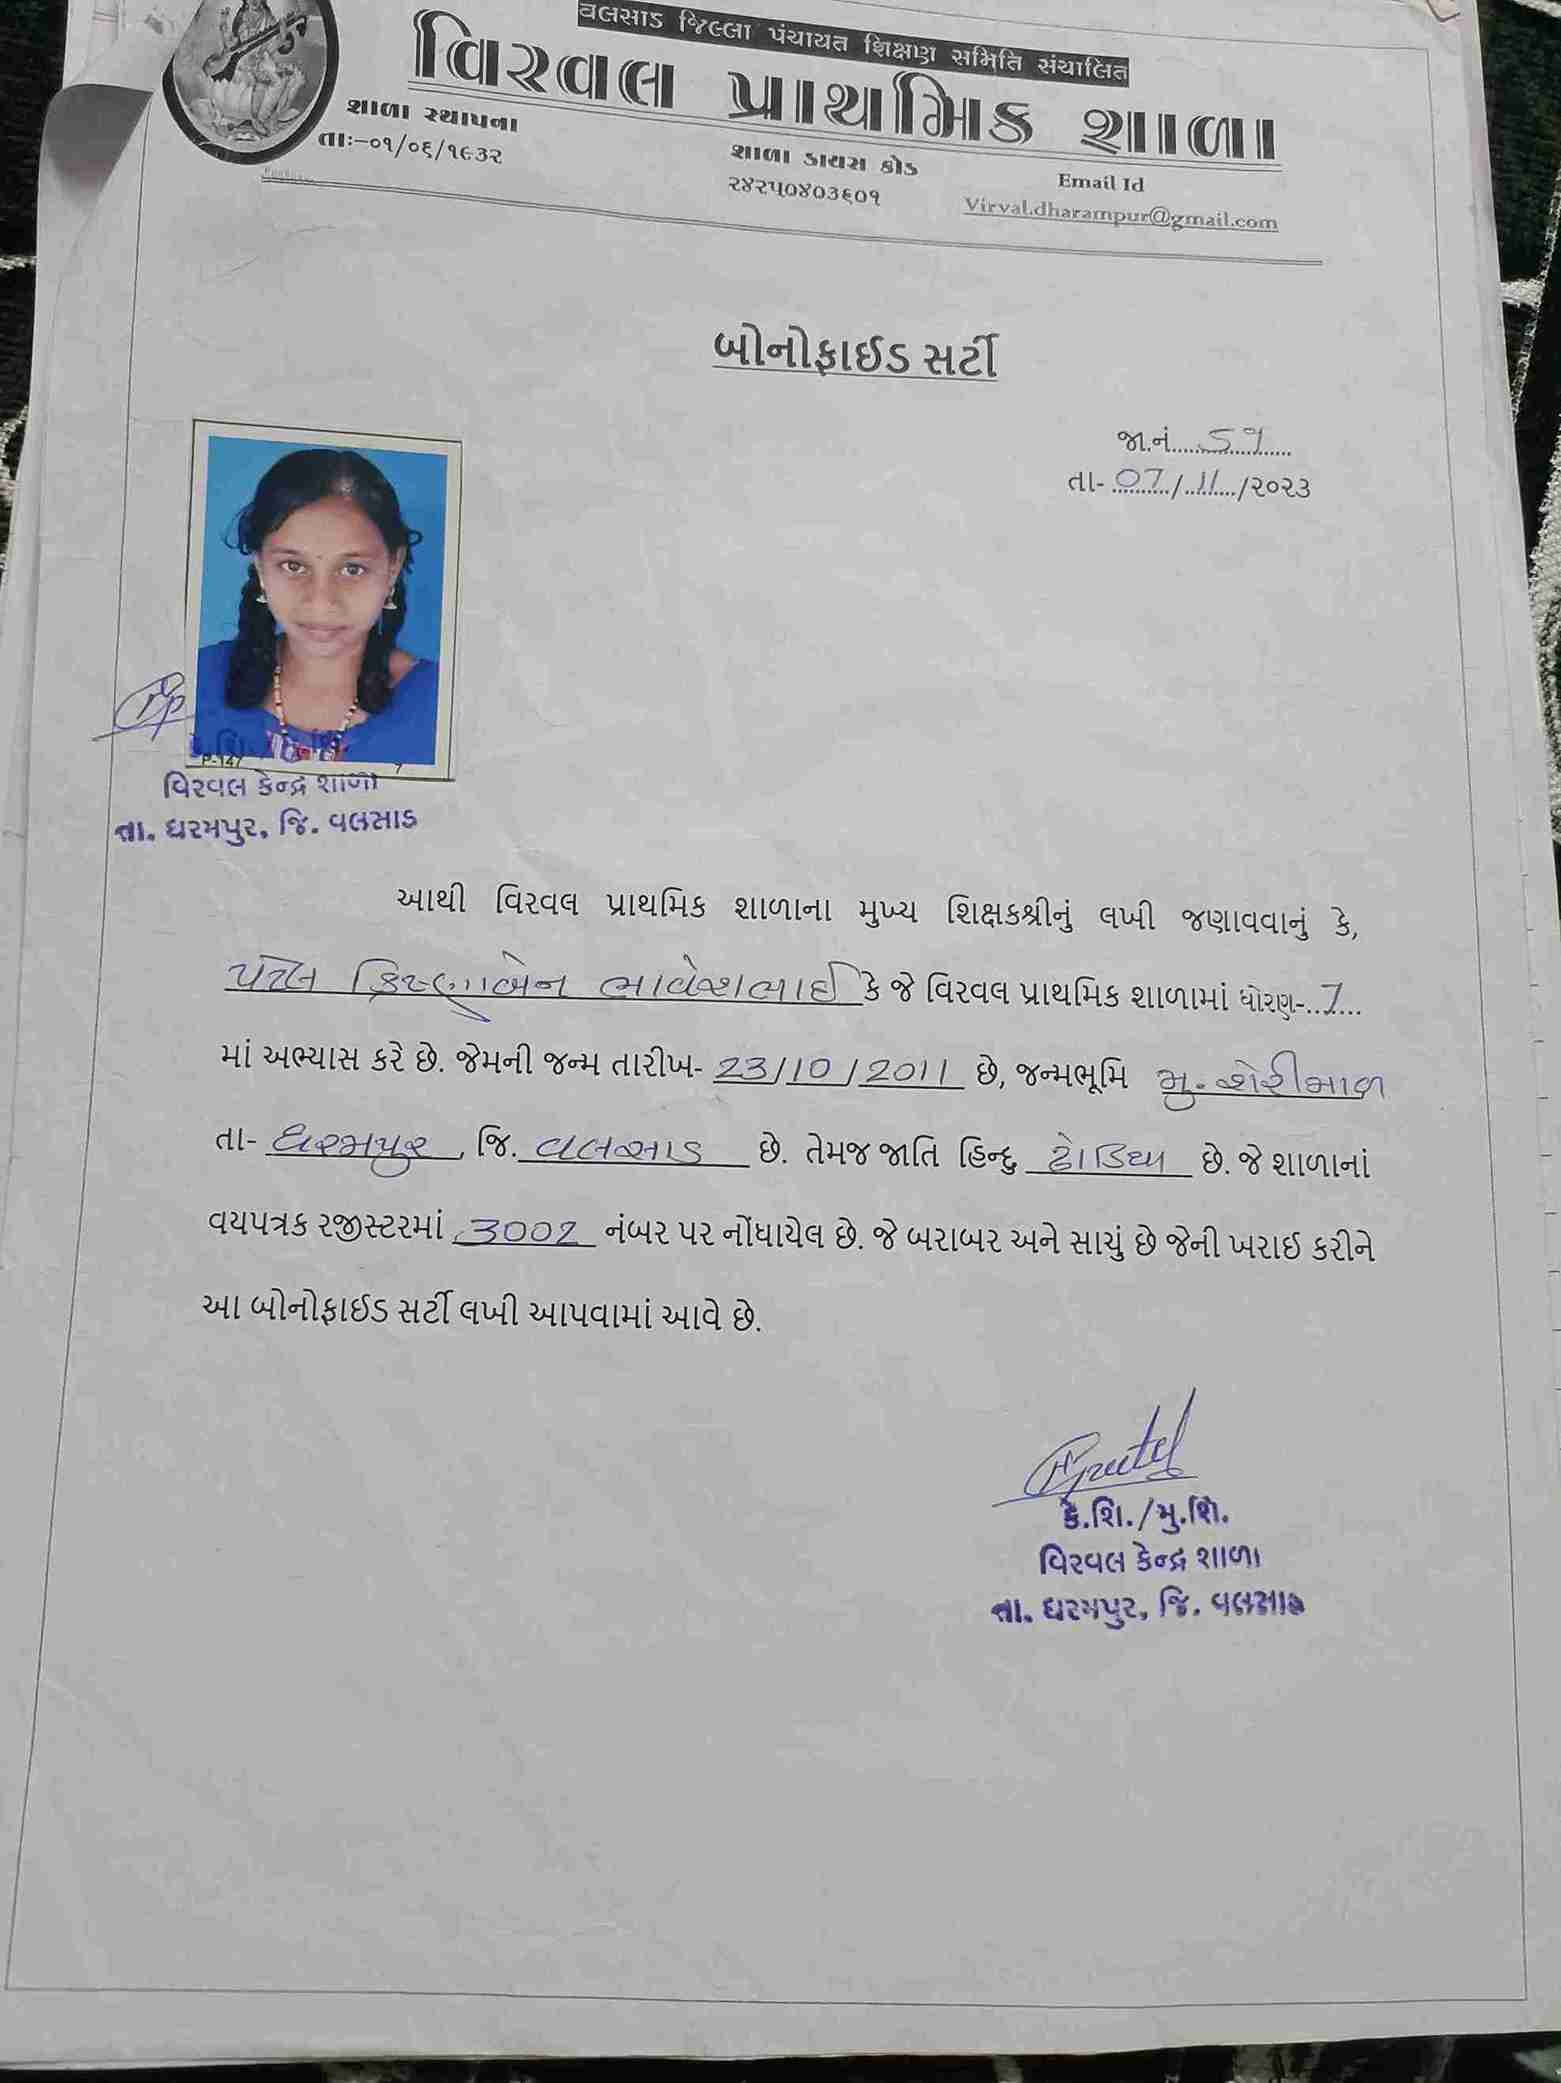 વલસાડ જિલ્લા પંચાયત શિક્ષણ સમિતિ સંચાલિત
વિરવલ પ્રાથમિક શાળા
શાળા સ્થાપના
તાઃ-૦૧/૦૬/૧૯૩૨
શાળા ડાયસ કોડ
૨૪૨૫૦૪૦૩૬૦૧
Email Id
Virval.dharampur@gmail.com
બોનોફાઈડ સર્ટી
જા.નં......51......
તા- 07/11/૨૦૨૩
P-147
વિરવલ કેન્દ્ર શાળા
તા. ધરમપુર, જિ. વલસાડ
આથી વિરવલ પ્રાથમિક શાળાના મુખ્ય શિક્ષકશ્રીનું લખી જણાવવાનું કે,
પટેલ ક્રિષ્ણાબેન ભાવેશભાઈ કે જે વિરવલ પ્રાથમિક શાળામાં ધોરણ-..7...
માં અભ્યાસ કરે છે. જેમની જન્મ તારીખ- 23/10/2011 છે, જન્મભૂમિ મુ. શેરીમાળ
તા- ધરમપુર, જિ. વલસાડ છે. તેમજ જાતિ હિન્દુ ઢોડિયા છે. જે શાળાનાં
વયપત્રક રજીસ્ટરમાં 3002 નંબર પર નોંધાયેલ છે. જે બરાબર અને સાચું છે જેની ખરાઈ કરીને
આ બોનોફાઈડ સર્ટી લખી આપવામાં આવે છે.
કે.શિ./મુ.શિ.
વિરવલ કેન્દ્ર શાળા
તા. ધરમપુર, જિ. વલસાડ